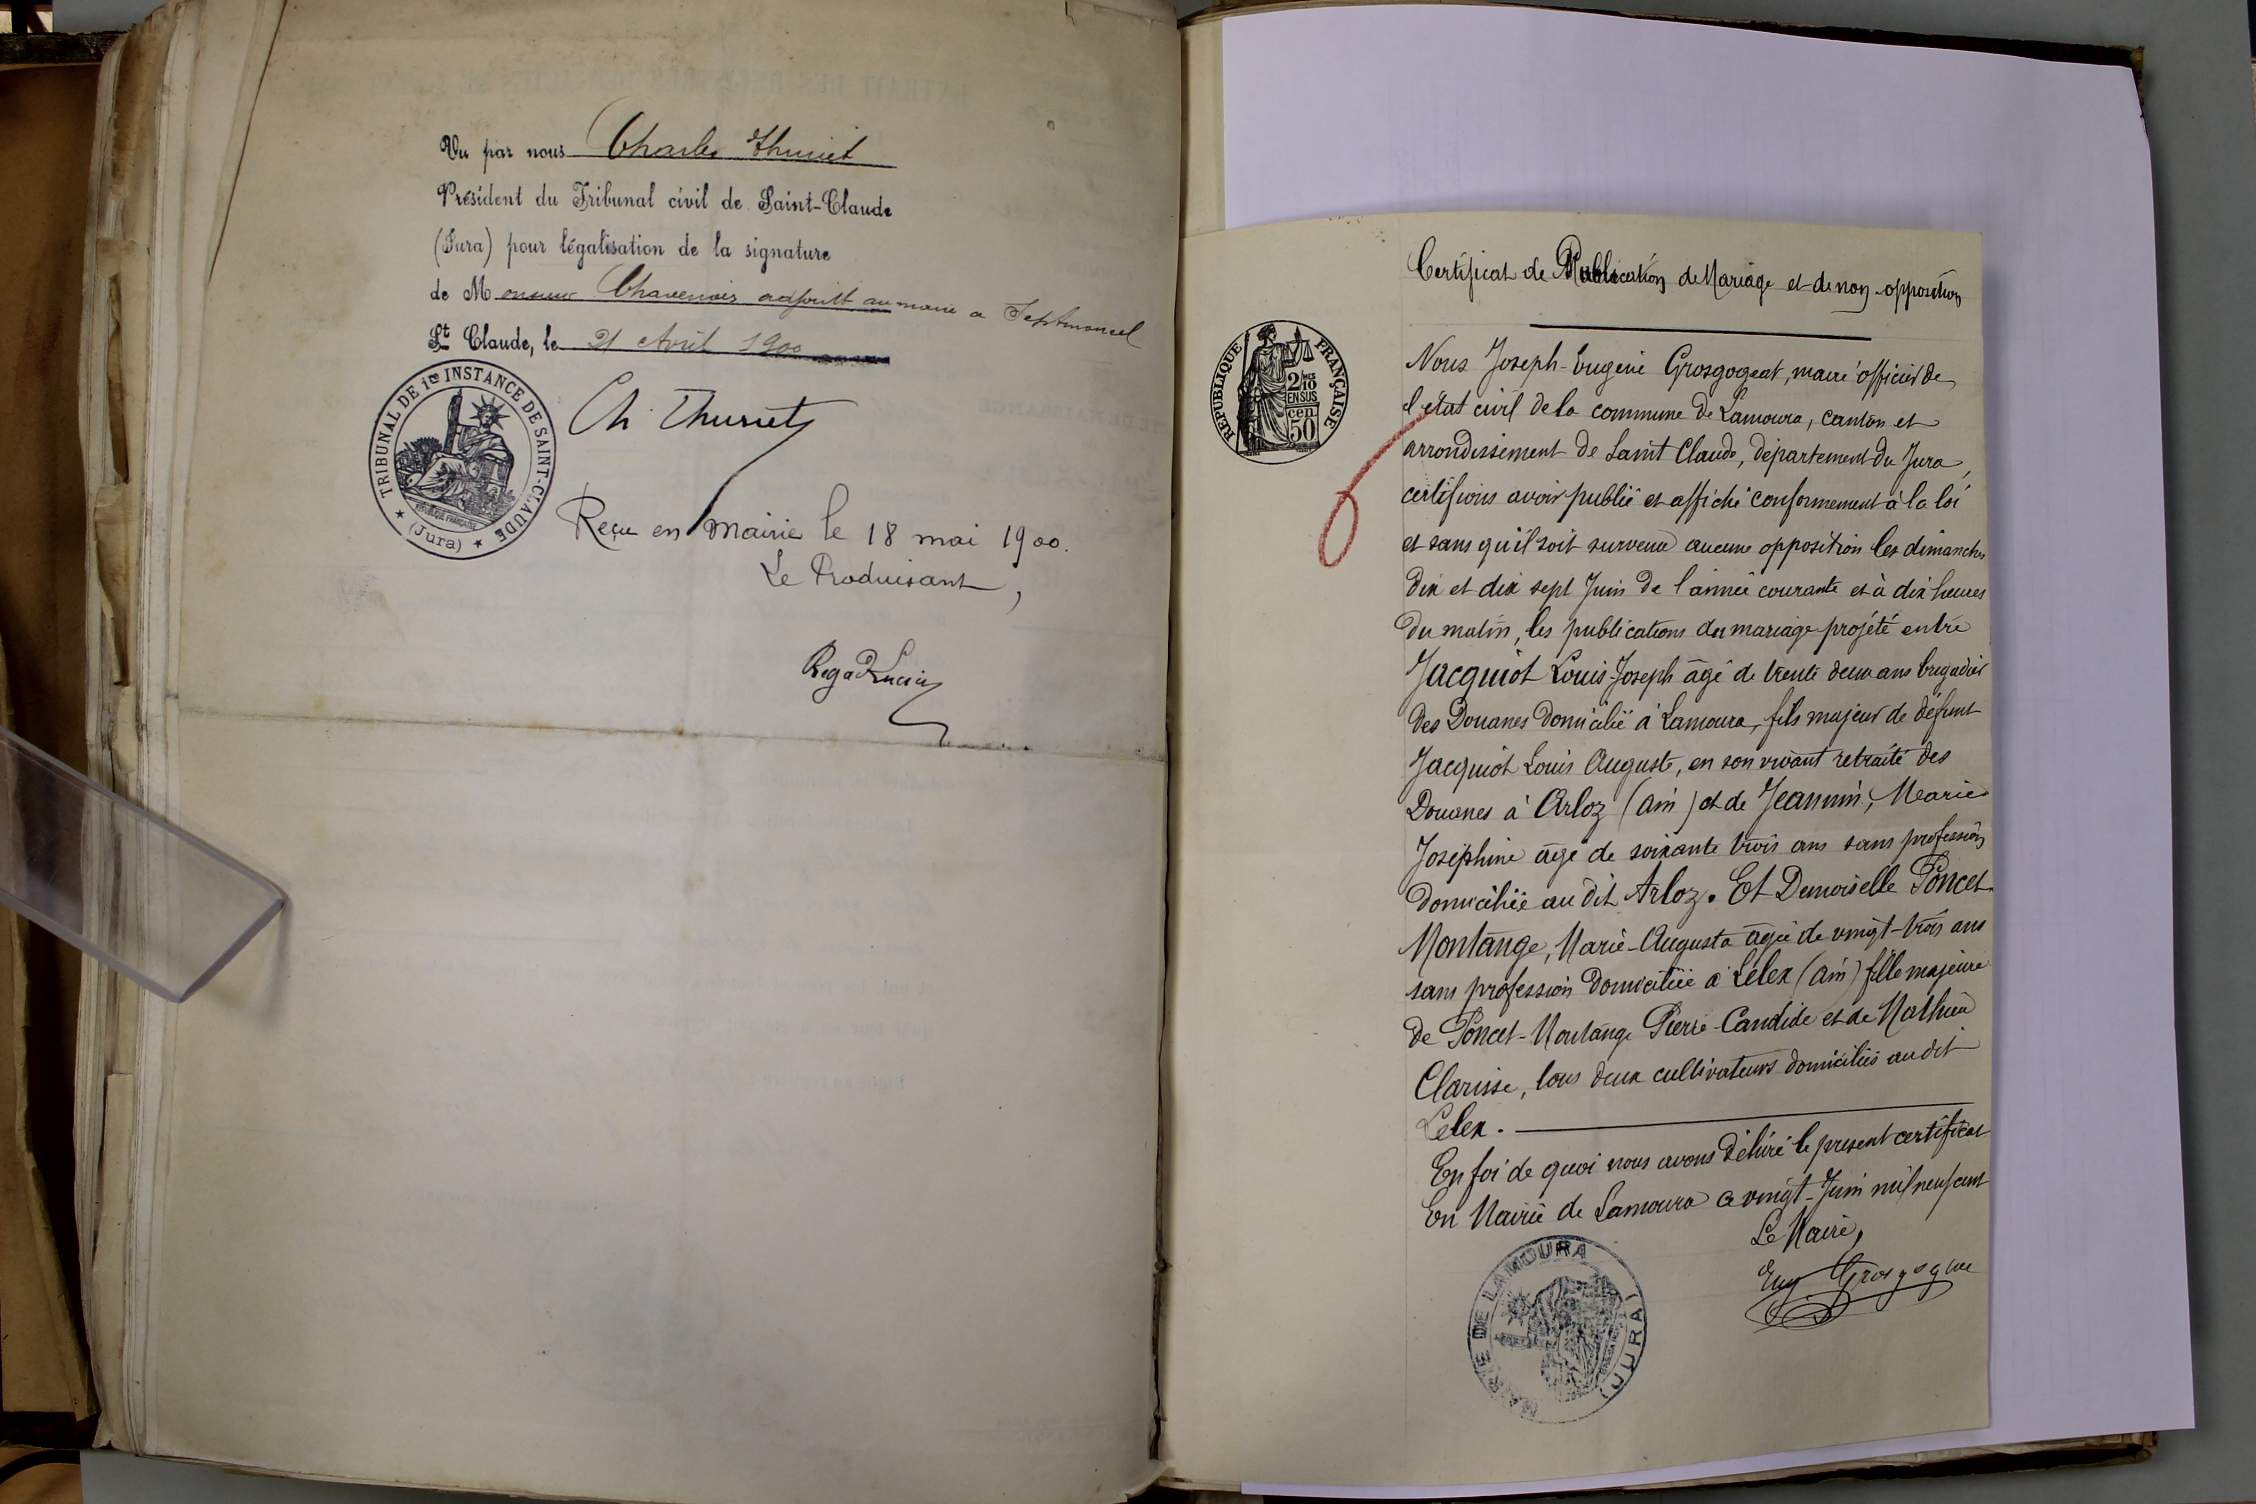 Vu par nous Charles Thuriet
Président du Tribunal civil de Saint-Claude
(Jura) pour légalisation de la signature
de Monsieur Chavenois adjoint au maire a Septmoncel
St Claude, le 21 Avril 1900
TRIBUNAL DE 1re INSTANCE DE SAINT-CLAUDE
(Jura)
Ch. Thuriet
Reçu en Mairie le 18 mai 1900.
Le Produisant,
Regad Lucien
Certificat de Publication de Mariage et de non-opposition
REPUBLIQUE FRANÇAISE
2/10 EN SUS
50 cen
Nous Joseph-Eugène Grosgogeat, maire officier de
l'état civil de la commune de Lamoura, canton et
arrondissement de Saint Claude, département du Jura,
certifions avoir publié et affiché conformement à la loi
et sans qu'il soit survenu aucune opposition les dimanches
dix et dix sept Juin de l'année courante et à dix heures
du matin, les publications du mariage projété entre
Jacquiot Louis-Joseph âgé de trente deux ans brigadier
des Douanes domicilié à Lamoura, fils majeur de défunt
Jacquiot Louis Auguste, en son vivant retraité des
Douanes à Arloz (Ain) et de Jeannin, Marie
Joséphine âgé de soixante trois ans sans profession
domiciliée au dit Arloz. Et Demoiselle Poncet
Montange, Marie-Augusta âgée de vingt-trois ans
sans profession domiciliée à Lélex (Ain) fille majeure
de Poncet-Montange Pierre-Candide et de Mathieu
Clarisse, tous deux cultivateurs domiciliés au dit
Lelex.
En foi de quoi nous avons délivré le présent certificat
En Mairie de Lamoura ce vingt-Juin mil neuf cent
Le Maire,
Eug. Grosgogeat
MAIRIE DE LAMOURA (JURA)